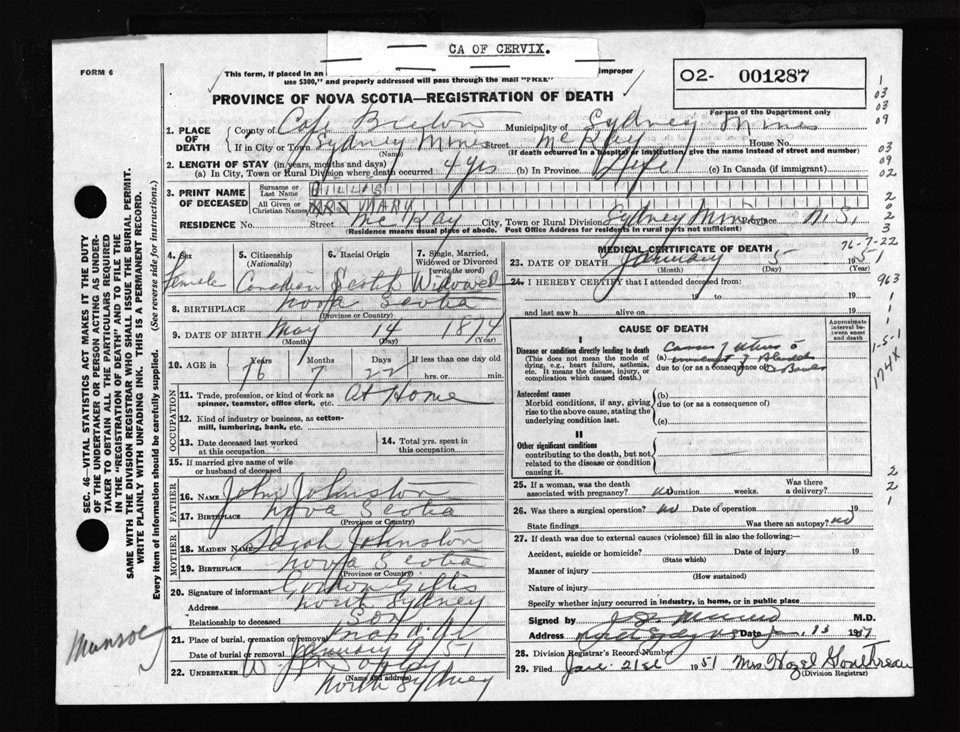 CA OF CERVIX.
FORM 6
This form, if placed in an
Improper
use $300," and properly addressed will pass through the mail "FREE"
O2- 001287
PROVINCE OF NOVA SCOTIA—REGISTRATION OF DEATH
For use of the Department only
1. PLACE OF DEATH
County of Cape Breton Municipality of Sydney Mines
If in City or Town Sydney Mines Street McKay House No.
(Name) (If death occurred in a hospital or institution, give the name instead of street and number)
2. LENGTH OF STAY (in years, months and days)
(a) In City, Town or Rural Division where death occurred 4 yrs (b) In Province Life (c) In Canada (if immigrant)
3. PRINT NAME OF DECEASED
Surname or Last Name GILLIS
All Given or Christian Names MARY
RESIDENCE No. Street McKay City, Town or Rural Division Sydney Mines Province N.S.
(Residence means usual place of abode. Post Office Address for residents in rural parts not sufficient)
4. Sex Female
5. Citizenship (Nationality) Canadian
6. Racial Origin Scotch
7. Single, Married, Widowed or Divorced (write the word) Widowed
8. BIRTHPLACE Nova Scotia
(Province or Country)
9. DATE OF BIRTH May 14 1874
(Month) (Day) (Year)
10. AGE in Years 76 Months 7 Days 22 If less than one day old
hrs. or min.
OCCUPATION
11. Trade, profession, or kind of work as spinner, teamster, office clerk, etc. At Home
12. Kind of industry or business, as cotton-mill, lumbering, bank, etc.
13. Date deceased last worked at this occupation
14. Total yrs. spent in this occupation
15. If married give name of wife or husband of deceased
FATHER
16. NAME John Johnston
17. BIRTHPLACE Nova Scotia
(Province or Country)
MOTHER
18. MAIDEN NAME Sarah Johnston
19. BIRTHPLACE Nova Scotia
(Province or Country)
20. Signature of informant Gordon Gillis
Address North Sydney
Relationship to deceased Son
21. Place of burial, cremation or removal
Date of burial or removal January 9/51
22. UNDERTAKER
(Name and Address)
North Sydney
MEDICAL CERTIFICATE OF DEATH
23. DATE OF DEATH January 5 1951
(Month) (Day) (Year)
24. I HEREBY CERTIFY that I attended deceased from:
19 to 19
I last saw h alive on 19
CAUSE OF DEATH
Approximate interval between onset and death
I
Disease or condition directly leading to death
(This does not mean the mode of dying, e.g., heart failure, asthenia, etc. It means the disease, injury, or complication which caused death.)
(a)
due to (or as a consequence of)
Antecedent causes
Morbid conditions, if any, giving rise to the above cause, stating the underlying condition last.
(b)
due to (or as a consequence of)
(c)
II
Other significant conditions
contributing to the death, but not related to the disease or condition causing it.
25. If a woman, was the death associated with pregnancy? no Duration weeks. Was there a delivery?
26. Was there a surgical operation? no Date of operation 19
State findings Was there an autopsy? no
27. If death was due to external causes (violence) fill in also the following:—
Accident, suicide or homicide? Date of injury 19
(State which)
Manner of injury
(How sustained)
Nature of injury
Specify whether injury occurred in industry, in home, or in public place
Signed by M.D.
Address
28. Division Registrar's Record Number
29. Filed Jan. 21st 1951 Mrs Hazel
(Division Registrar)
SEC. 46—VITAL STATISTICS ACT MAKES IT THE DUTY
OF THE UNDERTAKER OR PERSON ACTING AS UNDER-
TAKER TO OBTAIN ALL THE PARTICULARS REQUIRED
IN THE "REGISTRATION OF DEATH" AND TO FILE THE
SAME WITH THE DIVISION REGISTRAR WHO SHALL ISSUE THE BURIAL PERMIT.
WRITE PLAINLY WITH UNFADING INK. THIS IS A PERMANENT RECORD.
Every item of information should be carefully supplied. (See reverse side for instructions.)
Munroe
1
03
03
09
03
09
02
2
0
2
3
76-7-22
963
1
1
1-5-1
174X
2
2
1